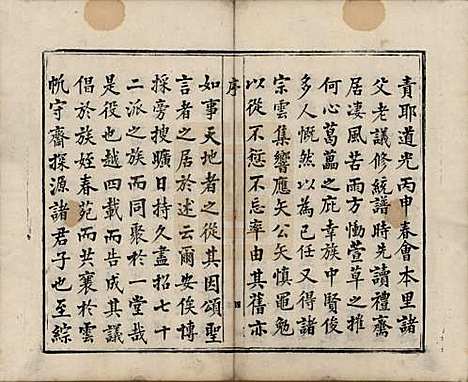 責耶道光丙申春會本里諸
父老議修統譜時先讀禮齋
居凄風苦雨方慟萱草之摧
何心葛藟之庇幸族中賢俊
多人慨然以為己任又得諸
宗雲集響應矢公矢慎黽勉
以從不愆不忘率由其舊亦
序
四
如事天地者之從其因頌聖
言者之居於述云爾安俟博
採旁搜曠日持久盡招七十
二派之族而同聚於一堂哉
是役也越四載而告成其議
倡於族姪春苑而共襄於雲
帆守齋探源諸君子也至綜